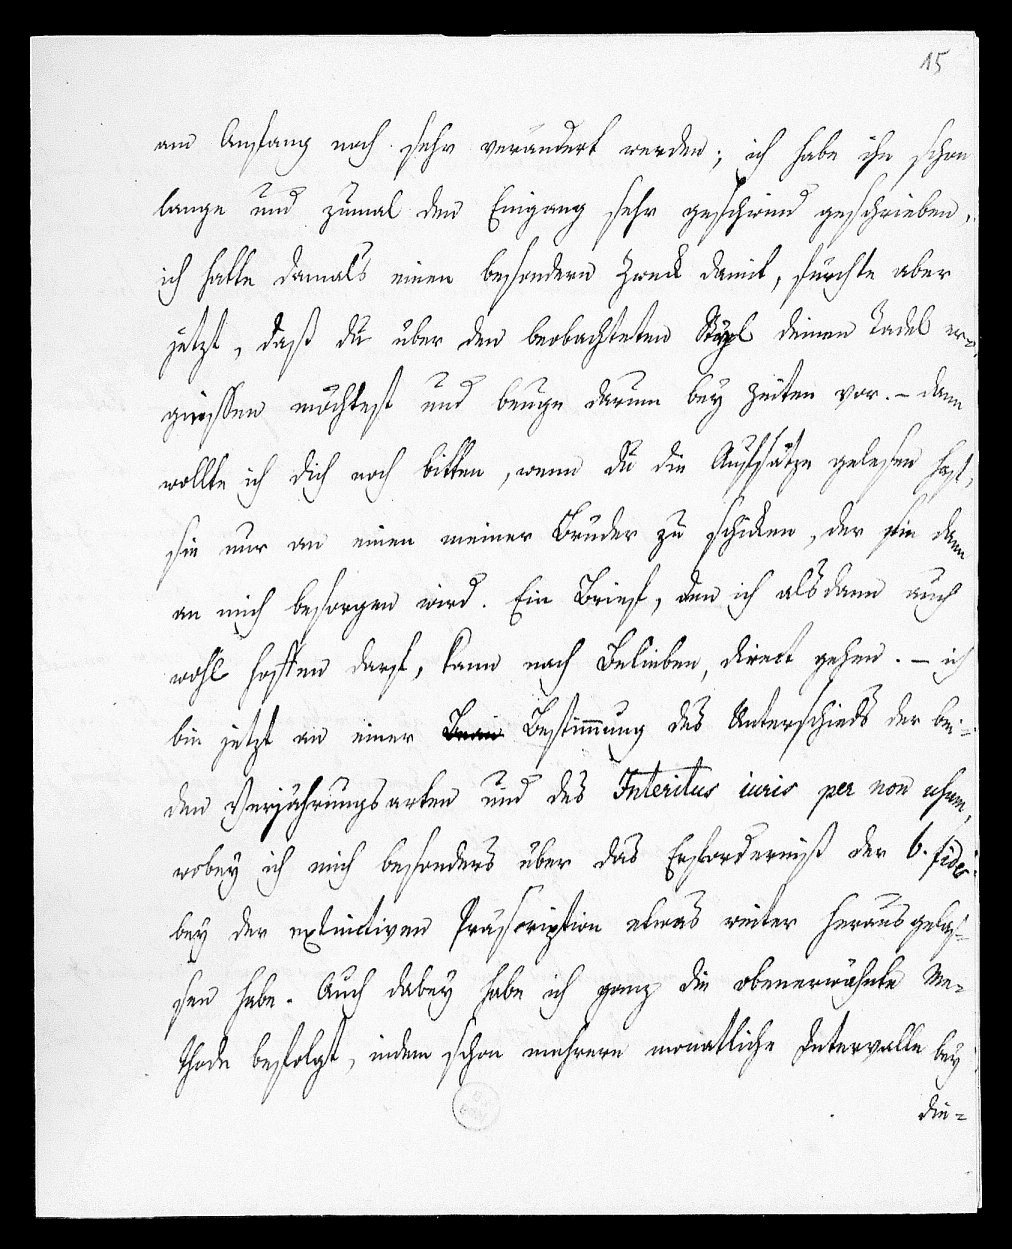 15
am Anfang noch sehr verändert werden; ich habe ihn schon
lange und zumal den Eingang sehr geschwind geschrieben,
ich hatte damals einen besondern Zweck damit, fürchte aber
jetzt, daß du über den beobachteten Styl deinen Tadel er-
giessen möchtest und beuge darum bey Zeiten vor. – dann
wollte ich dich noch bitten, wenn du die Aufsätze gelesen hast,
sie nur an einen meiner Brüder zu schicken, der sie dann
an mich besorgen wird. Ein Brief, den ich alsdann auch
wohl hoffen darf, kann nach Belieben, direct gehen. – ich
bin jetzt an einer Bestimmung des Unterschieds der bei-
den Verjährungsarten und des Interitus iuris per non usum,
wobey ich mich besonders über das Erforderniß der b. fides
bey der extinctiven Präscription etwas weiter herausgelas-
sen habe. Auch dabey habe ich ganz die obenerwähnte Me-
thode befolgt, indem schon mehrere monatliche Intervalle bey
die-